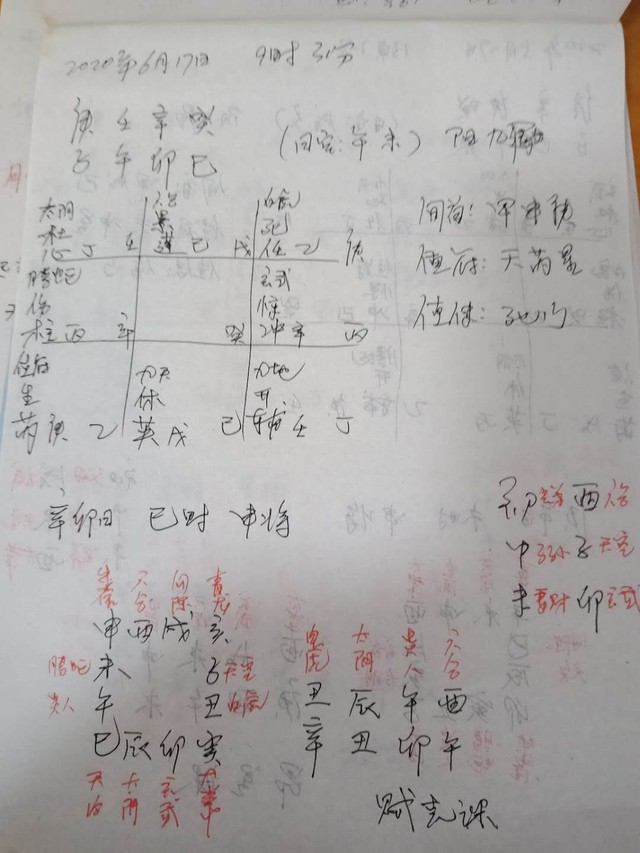 2020年6月17日 9时31分
庚 壬 辛 癸
子 午 卯 巳 (日空:午未) 阳九局
太阴 六合 白虎
杜 景 死
心 丁 壬 蓬 己 戊 任 乙 庚
旬首:甲申庚
值符:天芮星
值使:死门
螣蛇 玄武
伤 惊
柱 丙 辛 癸 冲 辛 丙
值符 九天 九地
生 休 开
芮 庚 乙 英 戊 己 辅 壬 丁
辛卯日 巳时 申将
初 酉 六合
中 子孙 子 天空
末 妻财 卯 玄武
朱雀 六合 勾陈 青龙
申 酉 戌 亥
螣蛇 未 子 天空
贵人 午 丑 白虎
巳 辰 卯 寅
太阴 玄武
白虎 太阴 贵人 六合
丑 辰 午 酉
辛 丑 卯 午
贼克课